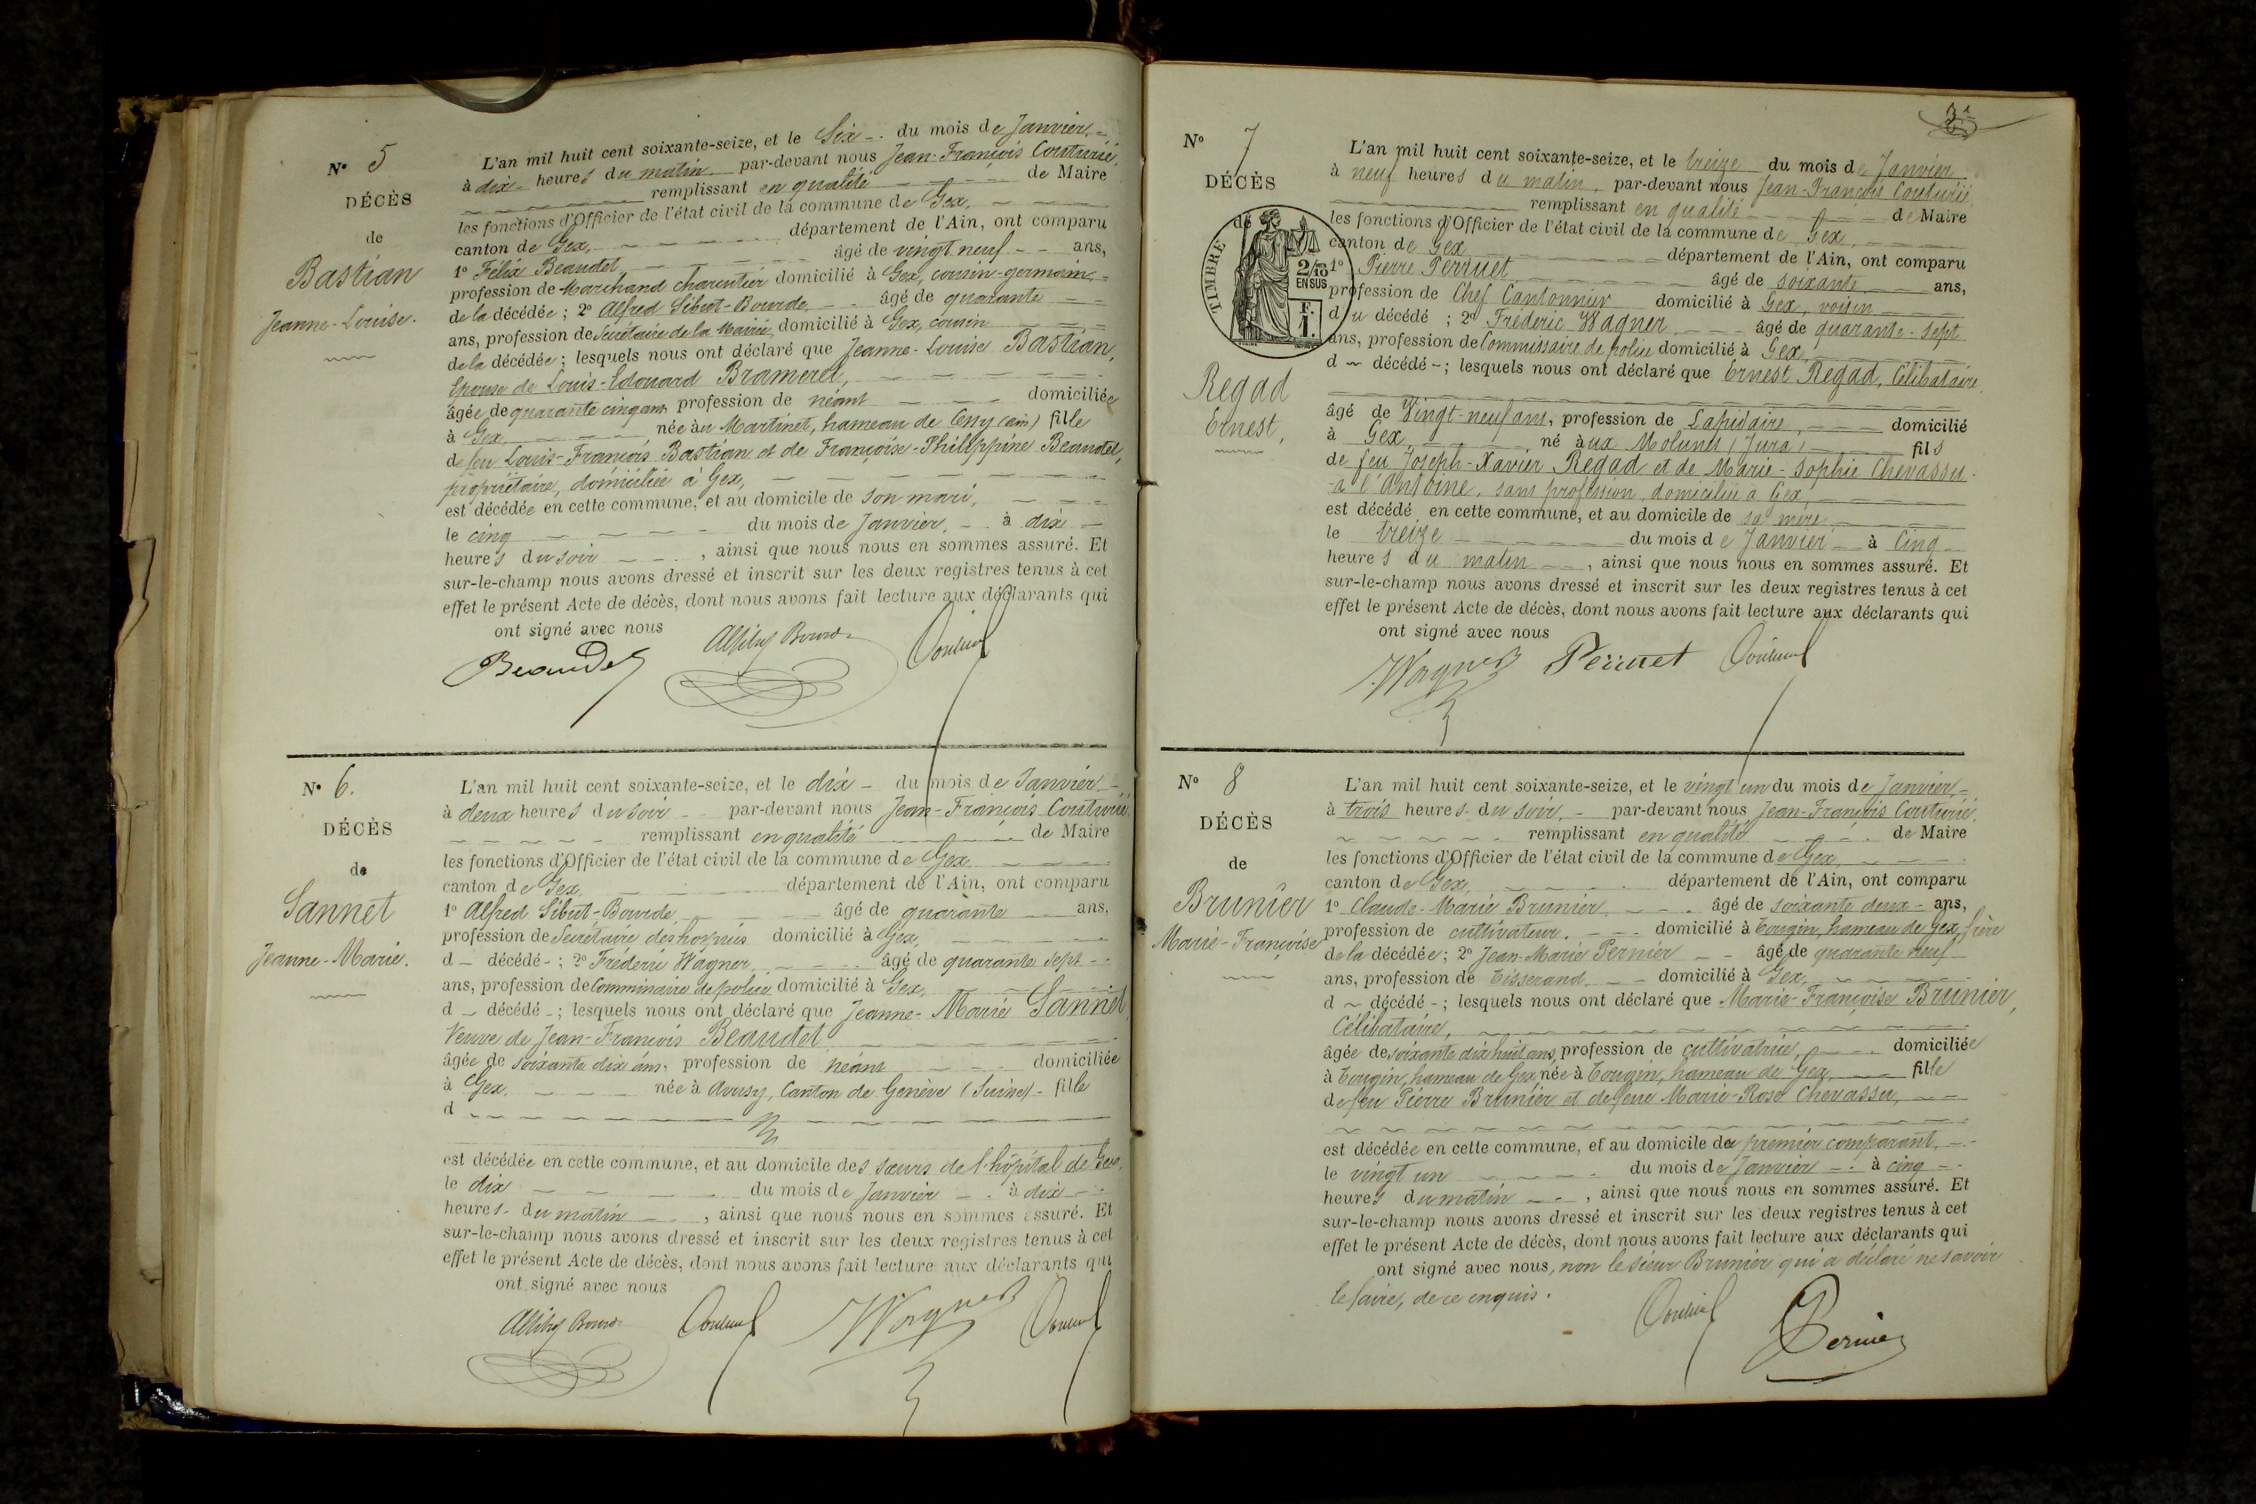 N° 5
DÉCÈS
de
Bastian
Jeanne-Louise.
L'an mil huit cent soixante-seize, et le Six du mois de Janvier
à dix heures du matin par-devant nous Jean-François Couturié
remplissant en qualité de Maire
les fonctions d'Officier de l'état civil de la commune de Gex,
canton de Gex, département de l'Ain, ont comparu
1° Félix Beaudet âgé de vingt neuf ans,
profession de Marchand charcutier domicilié à Gex, cousin-germain
de la décédée ; 2° Alfred Sibut-Bourde âgé de quarante
ans, profession de Secrétaire de la Mairie, domicilié à Gex, cousin
de la décédée ; lesquels nous ont déclaré que Jeanne-Louise Bastian,
Epouse de Louis-Edouard Brameret,
âgée de quarante cinq ans, profession de néant domiciliée
à Gex née au Martinet, hameau de Cessy (ain) fille
de feu Louis-François Bastian et de Françoise-Philippine Beaudet,
propriétaire, domiciliée à Gex,
est décédée en cette commune, et au domicile de son mari,
le cinq du mois de Janvier, à dix
heures du soir , ainsi que nous nous en sommes assuré. Et
sur-le-champ nous avons dressé et inscrit sur les deux registres tenus à cet
effet le présent Acte de décès, dont nous avons fait lecture aux déclarants qui
ont signé avec nous
Beaudet
N° 6.
DÉCÈS
de
Sannet
Jeanne-Marie.
L'an mil huit cent soixante-seize, et le dix du mois de Janvier
à deux heures du soir par-devant nous Jean-François Couturié
remplissant en qualité de Maire
les fonctions d'Officier de l'état civil de la commune de Gex
canton de Gex, département de l'Ain, ont comparu
1° Alfred Sibut-Bourde âgé de quarante ans,
profession de Secrétaire des hospices domicilié à Gex,
d décédé ; 2° Fréderic Wagner âgé de quarante sept
ans, profession de Commissaire de police domicilié à Gex,
d décédé ; lesquels nous ont déclaré que Jeanne-Marie Sannet,
Veuve de Jean-François Beaudet
âgée de soixante dix ans, profession de néant domiciliée
à Gex. née à Avusy, Canton de Genève (Suisse) fille
d
est décédée en cette commune, et au domicile des sœurs de l'hôpital de Gex,
le dix du mois de Janvier à dix
heures du matin , ainsi que nous nous en sommes assuré. Et
sur-le-champ nous avons dressé et inscrit sur les deux registres tenus à cet
effet le présent Acte de décès, dont nous avons fait lecture aux déclarants qui
ont signé avec nous
Wagner
N° 7
DÉCÈS
de
TIMBRE
2/10
EN SUS
F.
1.
Regad
Ernest,
L'an mil huit cent soixante-seize, et le treize du mois de Janvier
à neuf heures du matin, par-devant nous Jean-François Couturié
remplissant en qualité de Maire
les fonctions d'Officier de l'état civil de la commune de Gex,
canton de Gex département de l'Ain, ont comparu
1° Pierre Perruet âgé de soixante ans,
profession de Chef Cantonnier domicilié à Gex, voisin
du décédé ; 2° Fréderic Wagner âgé de quarante-sept
ans, profession de Commissaire de police domicilié à Gex,
d décédé ; lesquels nous ont déclaré que Ernest Regad, Célibataire
âgé de Vingt-neuf ans, profession de Lapidaire, domicilié
à Gex, né aux Molunes (Jura) fils
de feu Joseph-Xavier Regad et de Marie-Sophie Chevassu-
-à l'Antoine, sans profession, domiciliée à Gex,
est décédé en cette commune, et au domicile de sa mère
le treize du mois de Janvier à Cinq
heures du matin , ainsi que nous nous en sommes assuré. Et
sur-le-champ nous avons dressé et inscrit sur les deux registres tenus à cet
effet le présent Acte de décès, dont nous avons fait lecture aux déclarants qui
ont signé avec nous
Wagner Perruet
N° 8
DÉCÈS
de
Brunier
Marie-Françoise
L'an mil huit cent soixante-seize, et le vingt un du mois de Janvier
à trois heures du soir, par-devant nous Jean-François Couturié,
remplissant en qualité de Maire
les fonctions d'Officier de l'état civil de la commune de Gex,
canton de Gex, département de l'Ain, ont comparu
1° Claude-Marie Brunier âgé de soixante deux ans,
profession de cultivateur, domicilié à Tougin, hameau de Gex, frère
de la décédée ; 2° Jean-Marie Pernier âgé de quarante neuf
ans, profession de Tisserand domicilié à Gex,
d décédé ; lesquels nous ont déclaré que Marie-Françoise Brunier,
Célibataire,
âgée de soixante dix huit ans, profession de cultivatrice, domiciliée
à Tougin, hameau de Gex, née à Tougin, hameau de Gex, fille
de feu Pierre Brunier et de feue Marie-Rose Chevassu,
est décédée en cette commune, et au domicile du premier comparant,
le vingt un du mois de Janvier à cinq
heures du matin , ainsi que nous nous en sommes assuré. Et
sur-le-champ nous avons dressé et inscrit sur les deux registres tenus à cet
effet le présent Acte de décès, dont nous avons fait lecture aux déclarants qui
ont signé avec nous, non le sieur Brunier qui a déclaré ne savoir
le faire, de ce enquis.
Pernier